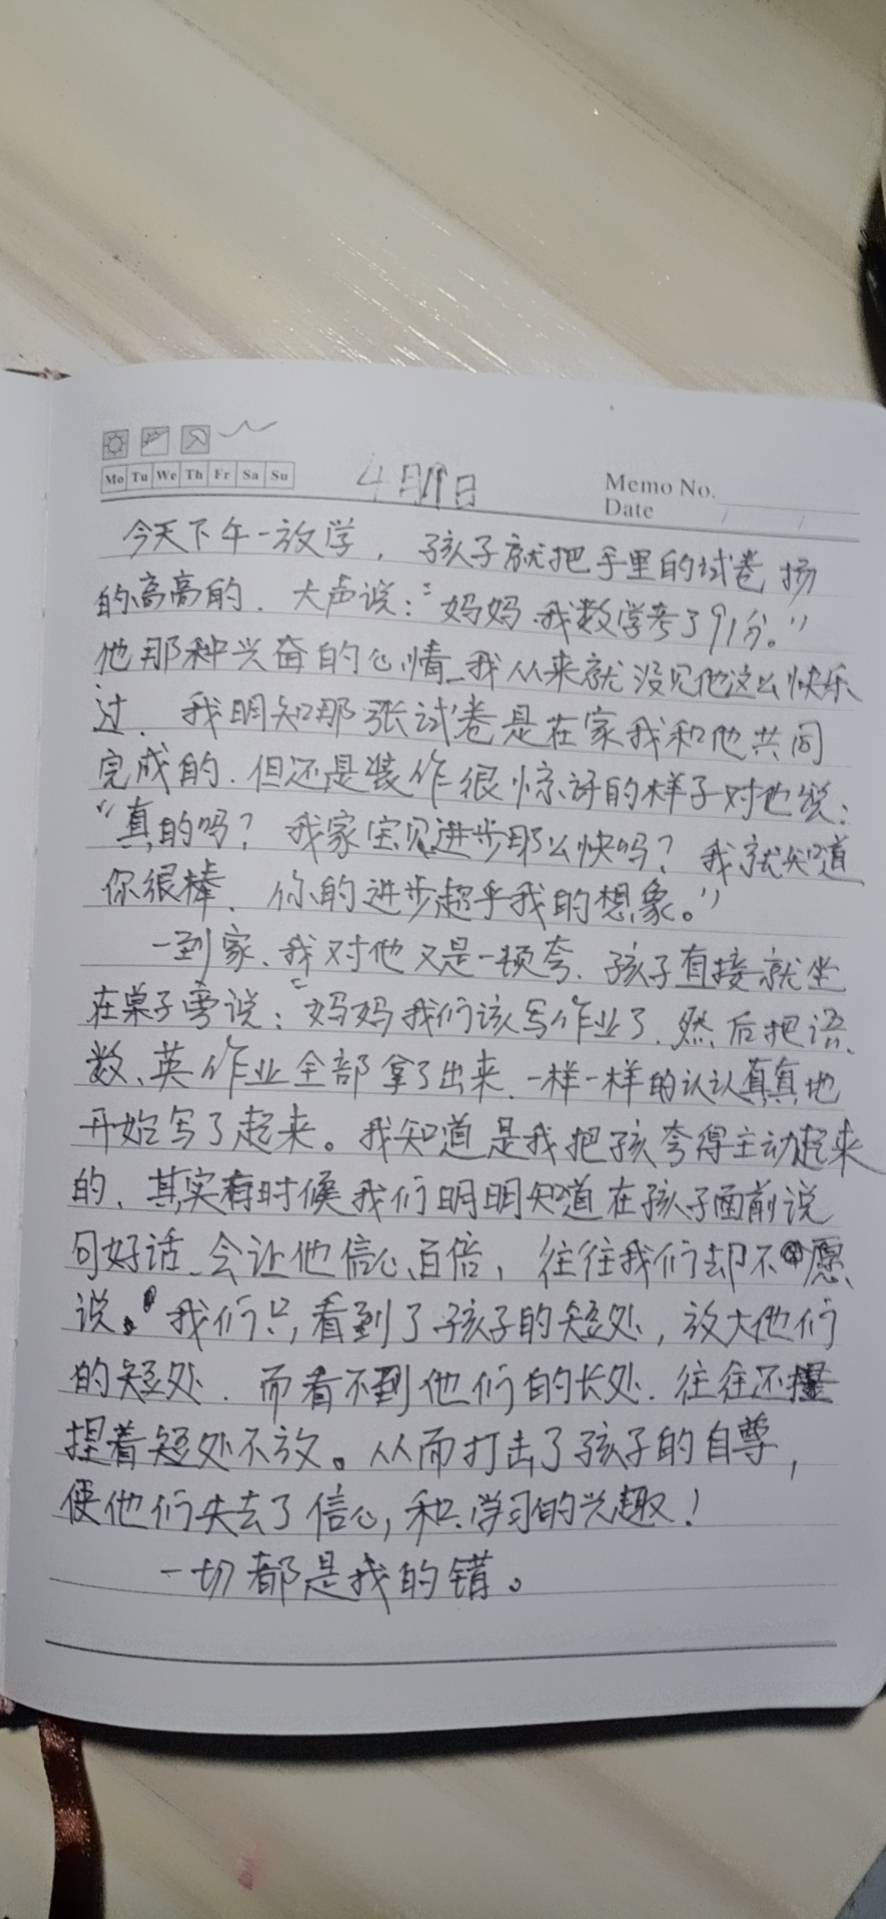 Mo Tu We Th Fr Sa Su
4月11日
Memo No.
Date
今天下午一放学，孩子就把手里的试卷扬
的高高的．大声说：“妈妈、我数学考了91分。”
他那种兴奋的心情、我从来就没见他这么快乐
过．我明知那张试卷是在家我和他共同
完成的．但还是装作很惊讶的样子对他说：
“真的吗？我家宝贝进步那么快吗？我就知道
你很棒．你的进步超乎我的想象。”
一到家、我对他又是一顿夸．孩子直接就坐
在桌子旁说：“妈妈我们该写作业了．然后把语、
数、英作业全部拿了出来．一样一样的认认真真地
开始写了起来。我知道是我把孩夸得主动起来
的、其实有时候我们明明知道在孩子面前说
句好话、会让他信心百倍，往往我们却不愿
说。我们只看到了孩子的短处，放大他们
的短处．而看不到他们的长处．往往还
捏着短处不放。从而打击了孩子的自尊，
使他们失去了信心，和学习的兴趣！
一切都是我的错。